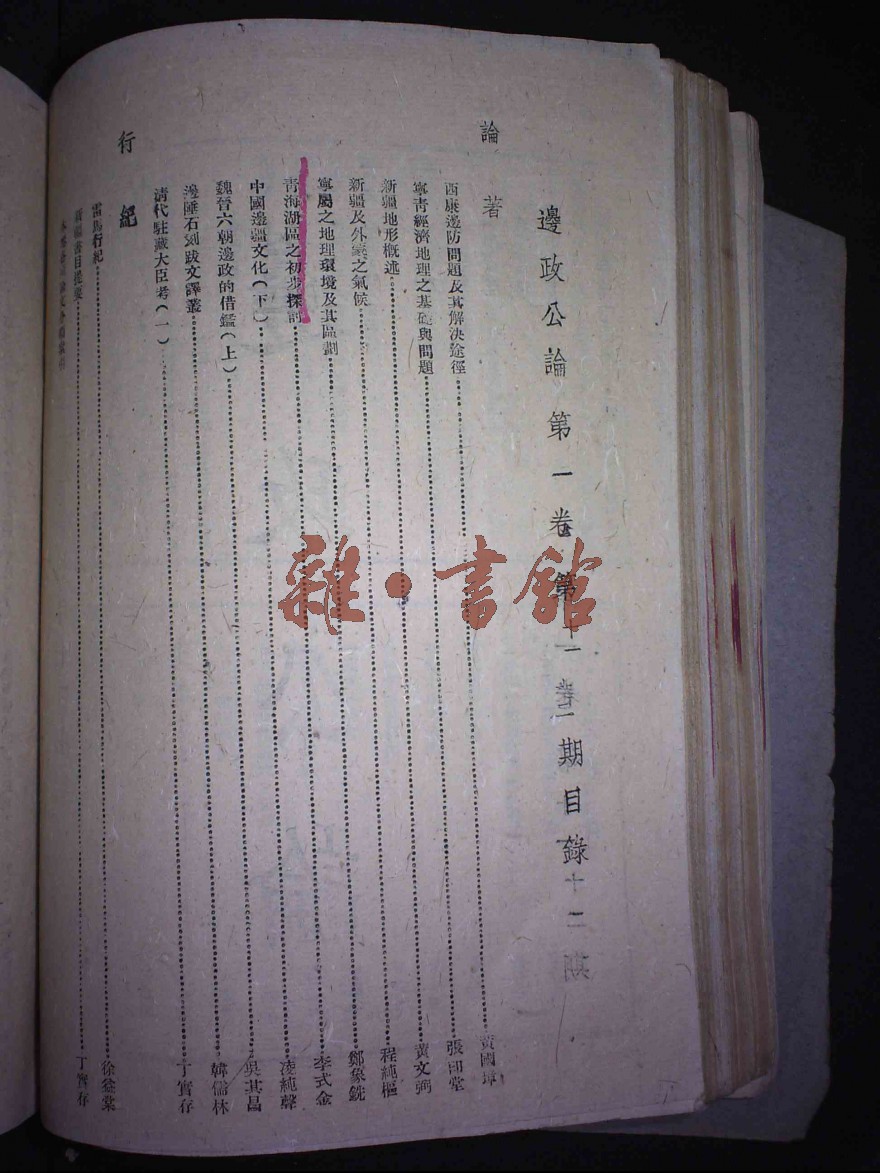 邊政公論第一卷第十一卷一期目錄十二期
論著
西康邊防問題及其解決途徑……黃國璋
寧青經濟地理之基礎與問題……張印堂
新疆地形概述……黃文弼
新疆及外蒙之氣候……程純樞
寧屬之地理環境及其區劃……鄭象銑
青海湖區之初步探討……李式金
中國邊疆文化(下)……凌純聲
魏晉六朝邊政的借鑑(上)……吳其昌
邊陲石刻跋文譯叢……韓儒林
清代駐藏大臣考(一)……丁實存
行紀
雷馬行紀……徐益棠
新疆書目提要……丁實存
雜·書館